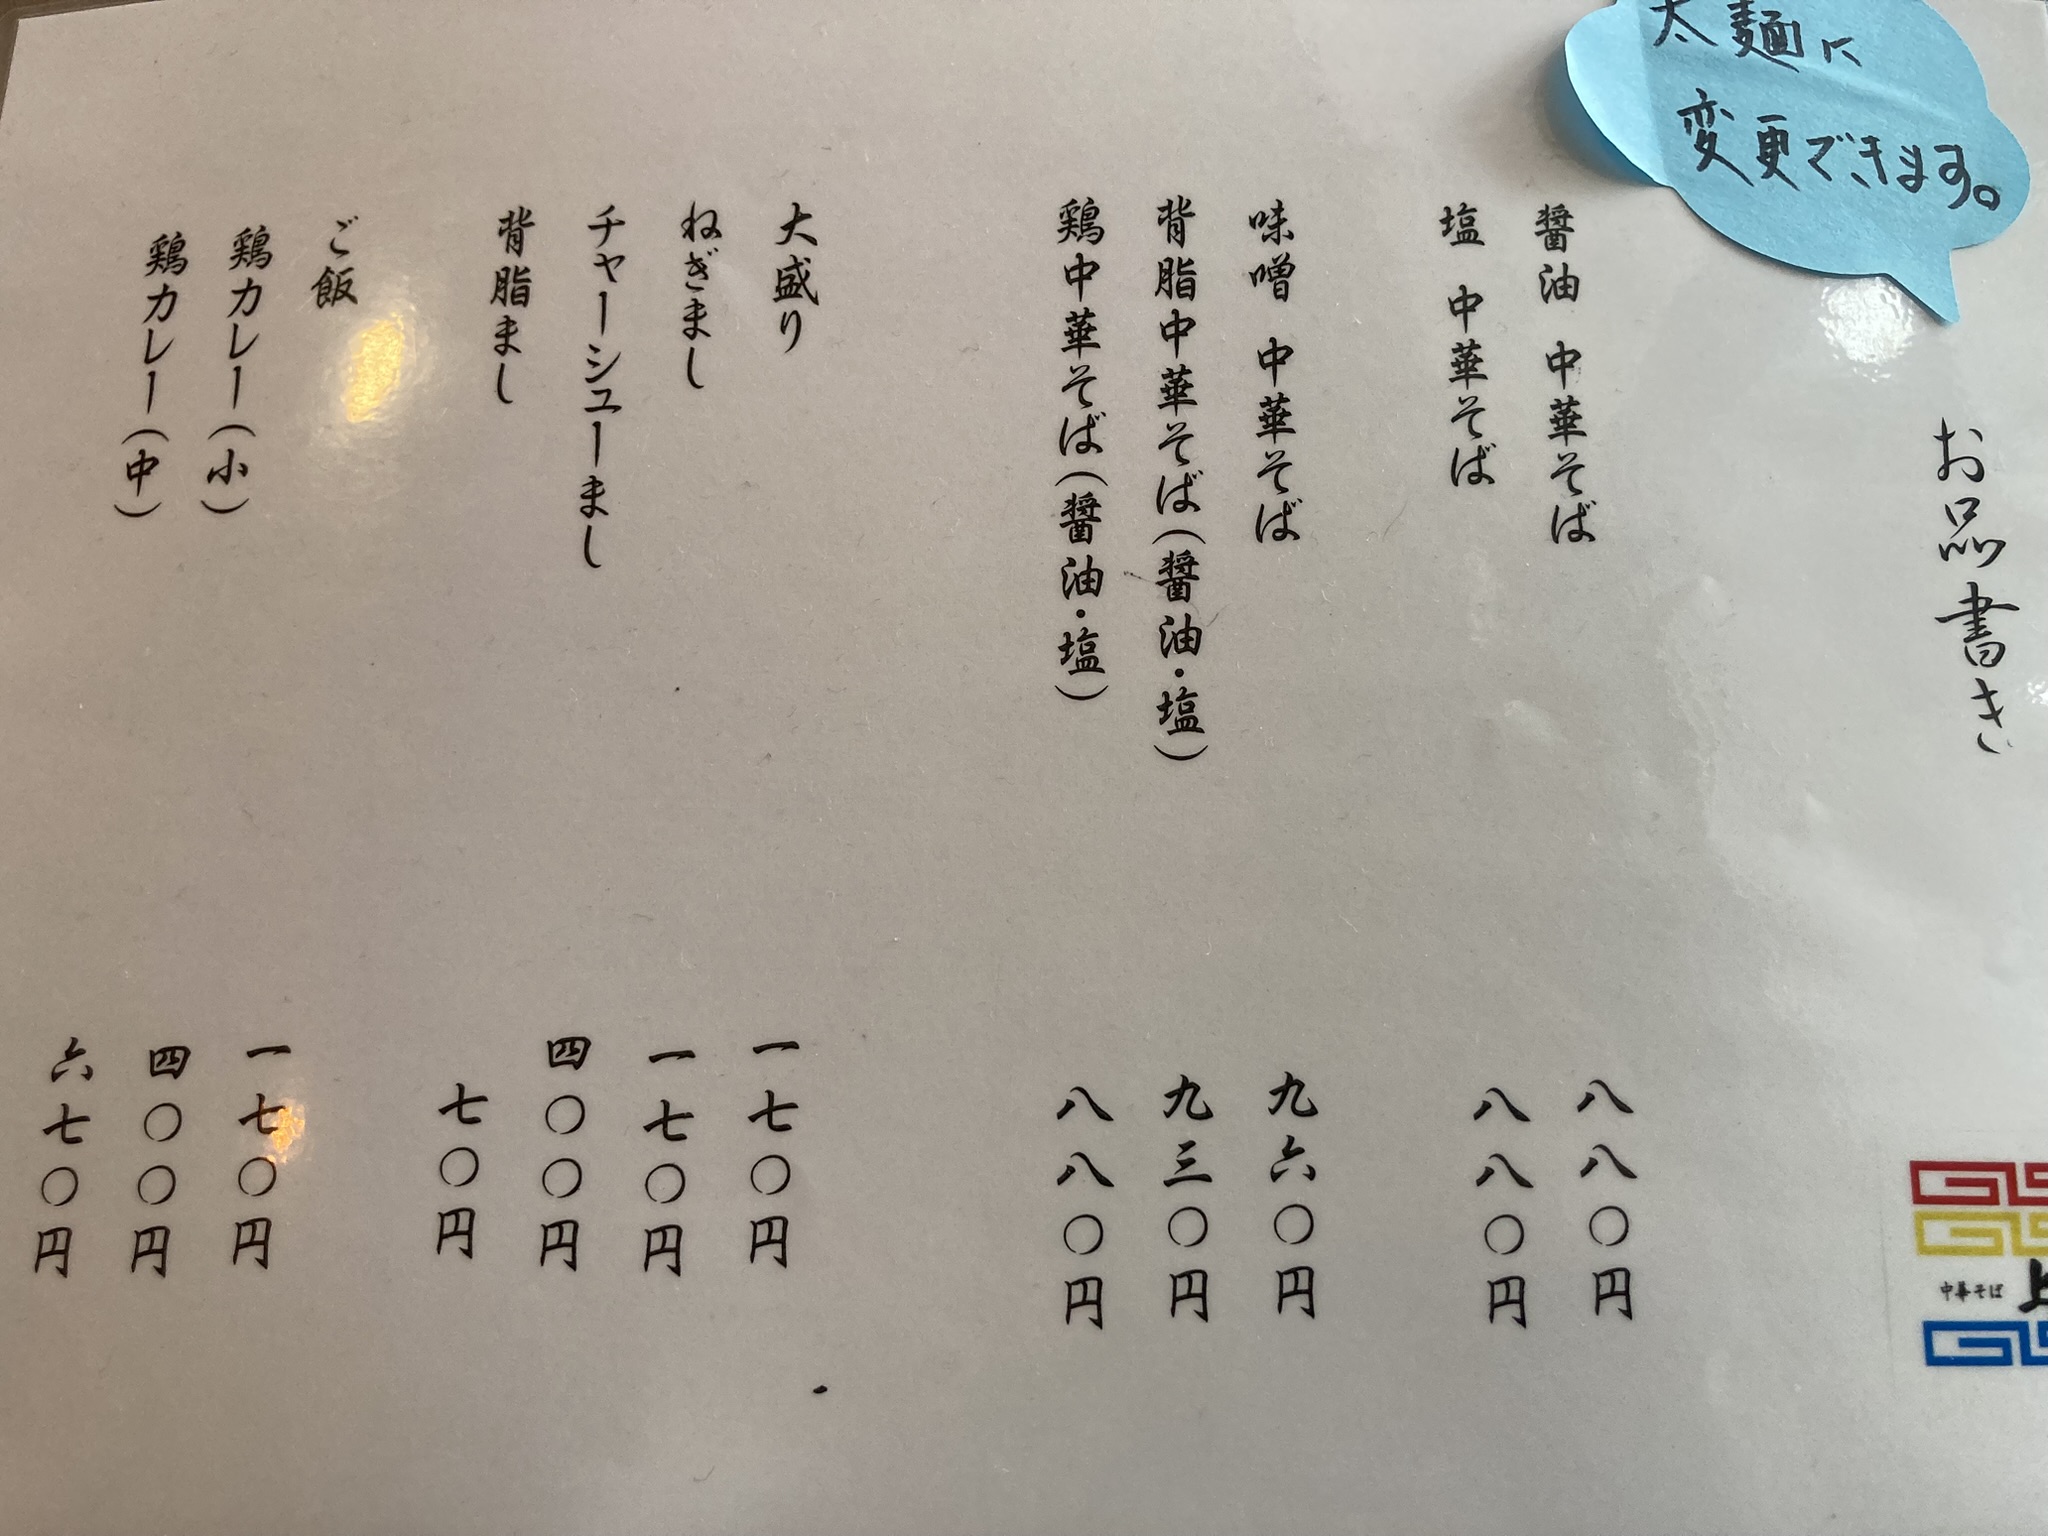 太麺に
変更できます。
お品書き
醤油 中華そば 八八〇円
塩 中華そば 八八〇円
味噌 中華そば 九六〇円
背脂中華そば(醤油・塩) 九三〇円
鶏中華そば(醤油・塩) 八八〇円
大盛り 一七〇円
ねぎまし 一七〇円
チャーシューまし 四〇〇円
背脂まし 七〇円
ご飯 一七〇円
鶏カレー(小) 四〇〇円
鶏カレー(中) 六七〇円
中華そば